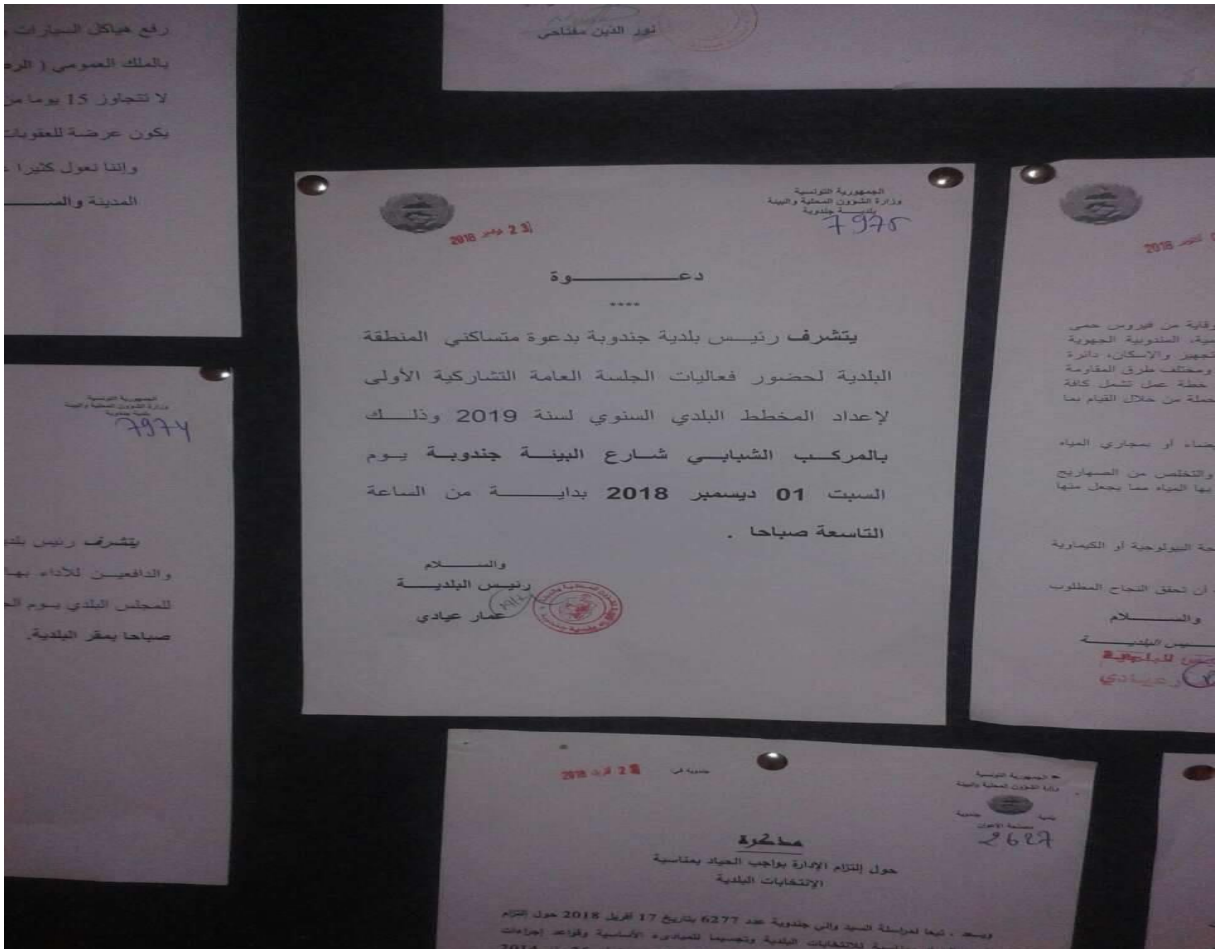 نور الدين مفتاحي
رفع هياكل السيارات
بالملك العمومي ( الر
لا تتجاوز 15 يوما من
يكون عرضة للعقوبات
وإننا نعول كثيرا
المدينة والســـــ
الجمهورية التونسية
وزارة الشؤون المحلية والبيئة
بلديـــــة جندوبة
7975
23 نوفمبر 2018
دعـــــــــوة
****
يتشرف رئيـــس بلدية جندوبة بدعوة متساكني المنطقة
البلدية لحضور فعاليات الجلسة العامة التشاركية الأولى
لإعداد المخطط البلدي السنوي لسنة 2019 وذلـــك
بالمركـــب الشبابـــي شـــارع البيئـــة جندوبـــة يـــوم
السبت 01 ديسمبر 2018 بدايـــــة من الساعة
التاسعة صباحا .
والســـــلام
رئيـــس البلديـــــة
عمار عيادي
الجمهورية التونسية
وزارة الشؤون المحلية والبيئة
بلدية جندوبة
7974
يتشرف رئيس بلدي
والدافعيـــن للأداء بهـا
للمجلس البلدي يـــوم الخ
صباحا بمقر البلدية.
أكتوبر 2018
وقاية من فيروس حمى
سية، المندوبية الجهوية
تجهيز والإسكان، دائرة
ومختلف طرق المقاومة
خطة عمل تشمل كافة
حملة من خلال القيام بما
بيضاء أو بمجاري المياه
والتخلص من الصهاريج
بها المياه مما يجعل منها
حة البيولوجية أو الكيماوية
أن تحقق النجاح المطلوب
والســـــلام
ـيس البلديـــــة
رئيس البلدية
عيادي
الجمهورية التونسية
وزارة الشؤون المحلية والبيئة
بلدية جندوبة
مصلحة الأعوان
2627
جندوبة في
أفريل 2018
مذكرة
حول إلتزام الإدارة بواجب الحياد بمناسبة
الإنتخابات البلدية
وبعد ، تبعا لمراسلة السيد والي جندوبة عدد 6277 بتاريخ 17 أفريل 2018 حول إلتزام
للانتخابات البلدية وتجسيما للمبادئ الأساسية وقواعد إجراءات
2014